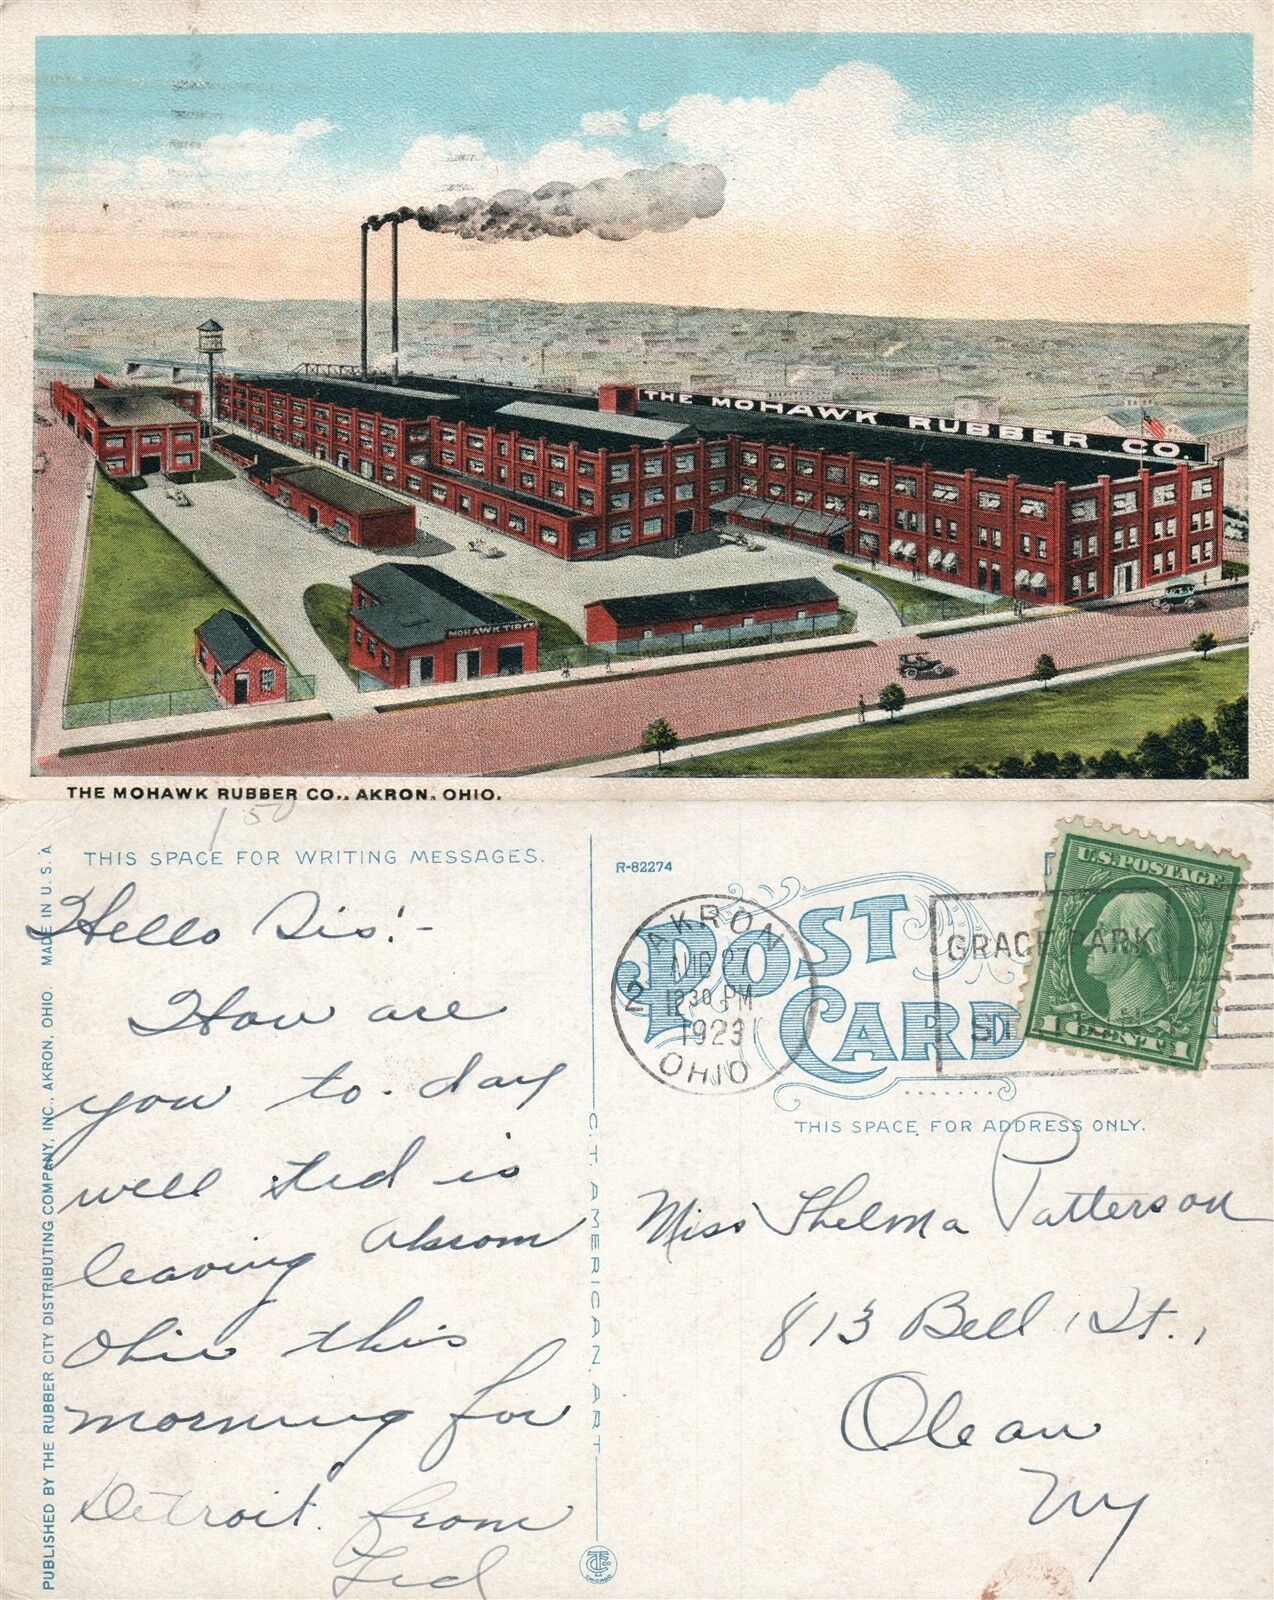 THE MOHAWK RUBBER CO.
MOHAWK TIRES
THE MOHAWK RUBBER CO., AKRON, OHIO.
1 50
THIS SPACE FOR WRITING MESSAGES.
Hello Sis!-
How are
you to-day
well Ted is
leaving Akrom
Ohio this
morning for
Detroit. from
Ted
PUBLISHED BY THE RUBBER CITY DISTRIBUTING COMPANY, INC., AKRON, OHIO. MADE IN U.S.A
C.T. AMERICAN ART
CHICAGO
R-82274
POST CARD
AKRON
AUG
1230 PM
1923
OHIO
2
GRACE PARK
ST
U.S. POSTAGE
1 CENT 1
THIS SPACE FOR ADDRESS ONLY.
Miss Thelma Patterson
813 Bell St.,
Olean
NY